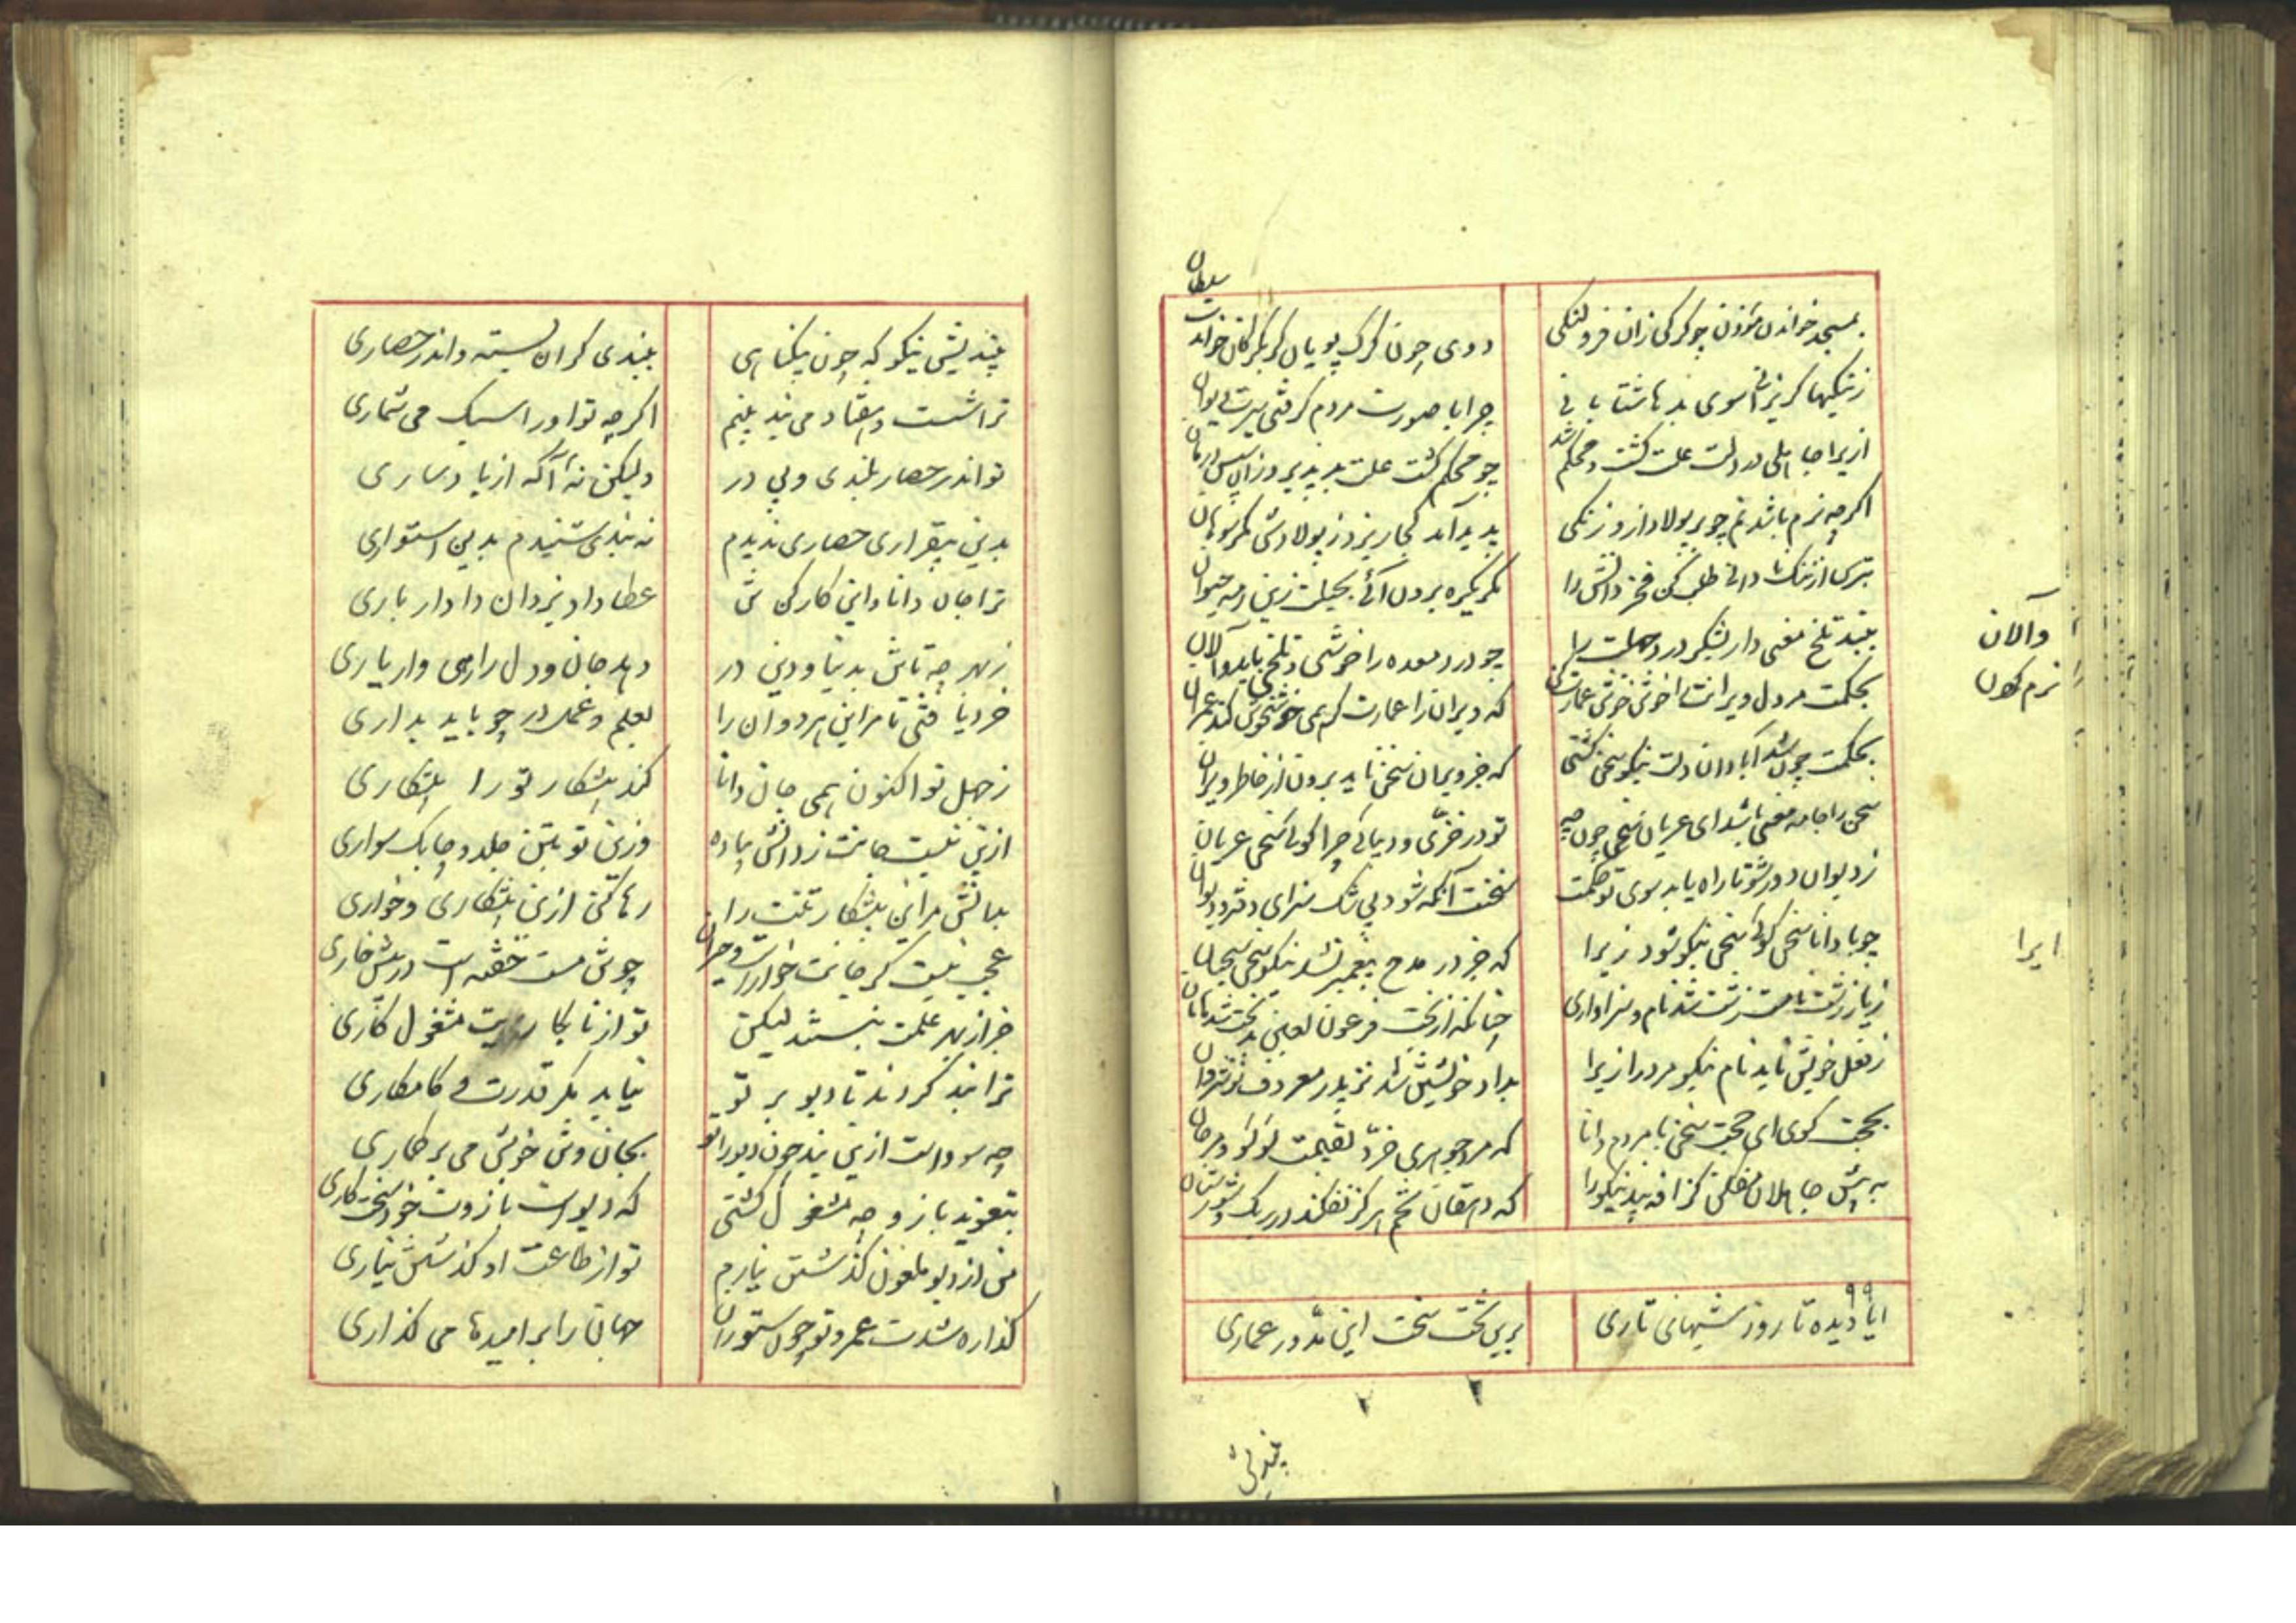 بمسجد خواندن مؤذن چو کرکی زان فرو لنکی
دوی چون کرک پویان کر بکرکان خواندت سلطان
ز نیکیها کریزانی سوی بدها شتابانی
چرا با صورت مردم کرفتی سیرت دیوان
ازیرا جاهلی در دلت علت کشت و محکم شد
چو محکم کشت علت بد پذیرد زان سپس درمان
اکرچه نرم باشد نم چو بر پولاد ازو زنکی
پدید آمد کجا ریزد ز پولادش مکر سوهان
بترس از ننک نادانی طلب کن فخر دانش را
مکر یکره برون آئی بحیلت زین رمه حیوان
به پند تلخ معنی دار بشکر درد جهلت را
چو درد معده را خوشی و تلخی باید و آلان
بحکمت مر دل ویرانت را خوش خوش عمارت کن
که ویران را عمارت کرد می خوش خوش کند عمران
بحکمت چون شد آبادان دلت نیکو سخن کشتی
که جز ویران سخن ناید برون از خاطر ویران
سخن را جامه معنی باشد ای عریان سخن چون چه
تو در خزی و دیبائی چرا کوئی سخن عریان
ز دیوان دور شو تا راه یابد سوی تو حکمت
سخنت آنکه شود بی شک سزای دفتر و دیوان
چو با دانا سخن کوئی سخن نیکو شود زیرا
که جز در مدح پیغمبر نشد نیکو سخن سحبان
ز یار زشت نامت زشت شد نام و سزاواری
چنانکه از بخت فرعون لعین بدبخت شد هامان
ز فعل خویش باید نام نیکو مرد را زیرا
بداد خویشتن شد نز پدر معروف نوشروان
بحجت کوی ای حجت سخن با مردم دانا
که مردجوهری خرد بقیمت لؤلؤ و مرجان
به پیش جاهلان مفکن کزافه پند نیکو را
که دهقان تخم هرکز نفکند در ریک و شورستان
۹۹
ایا دیده تا روز شبهای تاری
برین تخت سخت این مدور عماری
بیندیش
والآن
نرم کون
ایرا
بیندیش نیکو که چون بیکناهی
ببندی کران بسته و اندر حصاری
ترا شست و هفتاد می بند بینم
اکرچه تو او را سبک می شماری
تو اندر حصار بلندی و بی در
ولیکن نه آکه از باد ساری
بدین بیقراری حصاری ندیدم
نه بندی شنیدم بدین استواری
ترا جان دانا و این کارکن تن
عطا داد یزدان دادار باری
ز بهر چه تاش بدنیا و دین در
دهد جان و دل را رهی وار یاری
خرد یافتی تا مر این هر دوان را
بعلم و عمل در چو باید بداری
ز جهل تو اکنون همی جان دانا
کند پیشکار تو را پیشکاری
ازین نیست جانت ز دانش پیاده
وزین تو بتن جلد و چابک سواری
بدانش مر این پیشکار تنت را
رها کن ازین پیشکاری و خواری
عجب نیست کر جانت خوارست و حیران
چو تن مست خفته است در پیش خاری
خر از بهر علمت ببستند لیکن
تو از نابکاریت مشغول کاری
ترا بند کردند تا دیو بر تو
نیابد مکر قدرت و کامکاری
چه سوداست ازین بند چون دیو را تو
بجان و تن خویش می برکماری
بتعوید بازو چه مشغول کشتی
که دیوست بازوت خود سخت کاری
من از دیو ملعون کذشتن نیارم
تو از طاعت او کذشتن نیاری
کذاره شدت عمر و تو چون ستوران
جهان را بر امیدها می کذاری